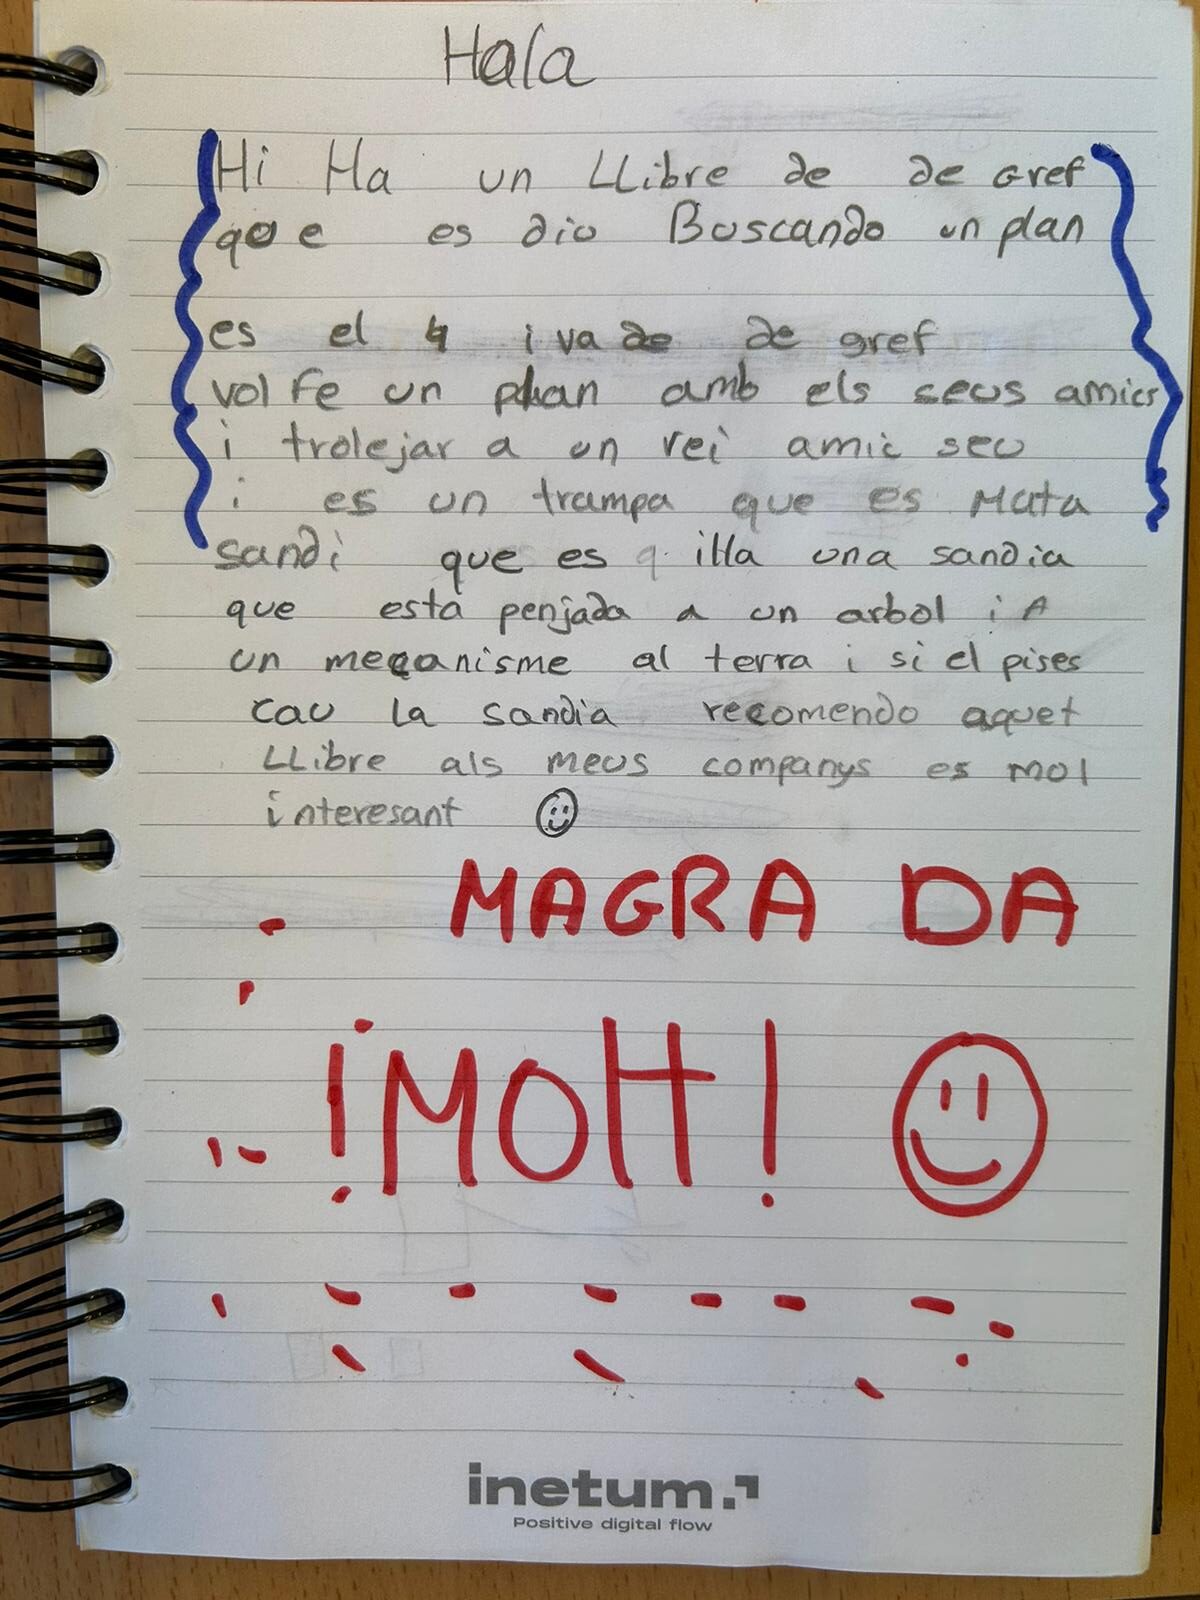 Hala
Hi Ha un LLibre de de Gref
que es diu Buscando un plan
es el 4 i va de de gref
vol Fe un plan amb els seus amics
i trolejar a un rei amic seu
i es un trampa que es Mata
sandi que es q illa una sandia
que esta penjada a un arbol i A
un mecanisme al terra i si el pises
cau la sandia recomendo aquet
LLibre als meus companys es mol
interesant
MAGRA DA
¡MOLT!
inetum.
Positive digital flow